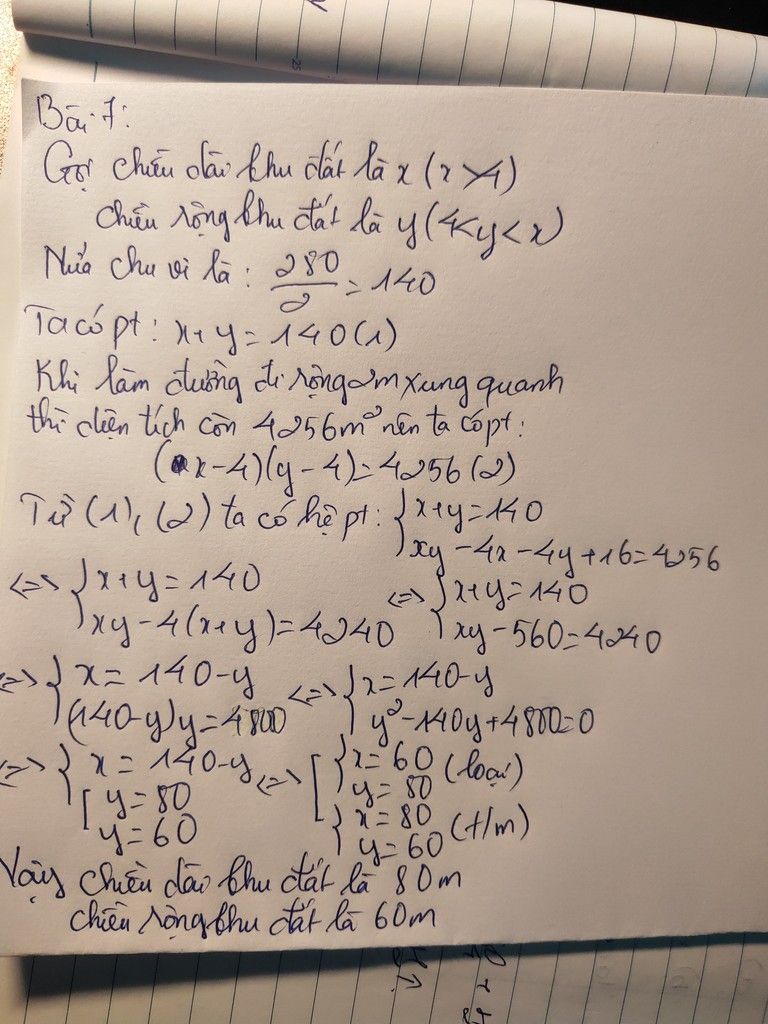 Bài 7:
Gọi chiều dài khu đất là x (x>4)
chiều rộng khu đất là y (4<y<x)
Nửa chu vi là: 280/2 = 140
Ta có pt: x+y=140(1)
Khi làm đường đi rộng 2m xung quanh
thì diện tích còn 4256m² nên ta có pt:
(x-4)(y-4)=4256(2)
Từ (1), (2) ta có hệ pt: { x+y=140
xy-4x-4y+16=4256
<=> { x+y=140 <=> { x+y=140
xy-4(x+y)=4240 xy-560=4240
<=> { x=140-y <=> { x=140-y
(140-y)y=4800 y²-140y+4800=0
<=> { x=140-y <=> [ { x=60 (loại)
[ y=80 y=80
y=60 { x=80 (t/m)
y=60
Vậy chiều dài khu đất là 80m
chiều rộng khu đất là 60m